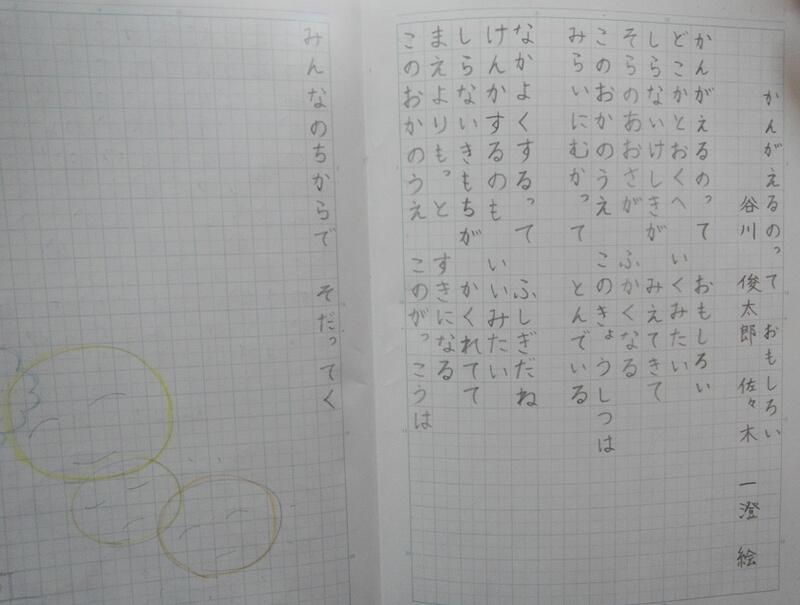 かんがえるのって おもしろい
谷川 俊太郎 佐々木 一澄 絵
かんがえるのって おもしろい
どこかとおくへ いくみたい
しらないけしきが みえてきて
そらのあおさが ふかくなる
このおかのうえ このきょうしつは
みらいにむかって とんでいる
なかよくするって ふしぎだね
けんかするのも いいみたい
しらないきもちが かくれてて
まえよりもっと すきになる
このおかのうえ このがっこうは
みんなのちからで そだってく